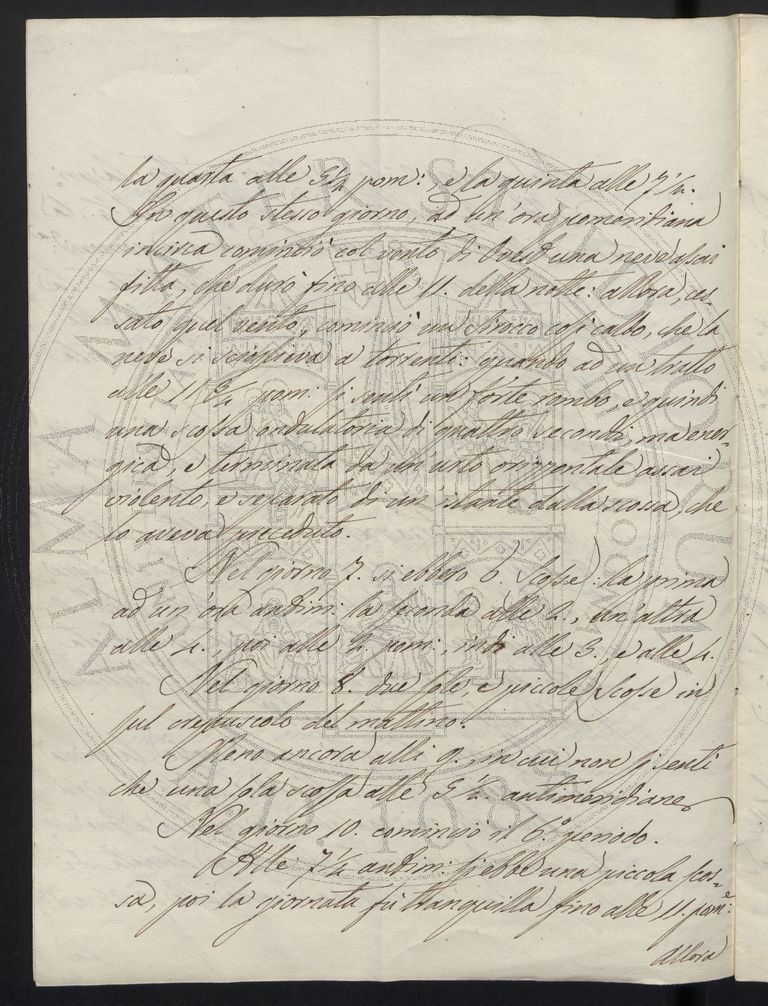 la quarta alle 5½ pom:, e la quinta alle 7½.
In questo stesso giorno, ad un'ora pomeridiana
incirca cominciò col vento di Ovest una neve assai
fitta, che durò fino alle 11. della notte: allora, ces
sato quel vento, cominciò un Sirocco così caldo, che la
neve si scioglieva a torrenti: quando ad un tratto
alle 11¾ pom: si sentì un forte rombo, e quindi
una scossa ondulatoria di quattro secondi, ma ener-
gica, e terminata da un urto orizzontale assai
violento, e separato di un istante dalla scossa, che
lo aveva preceduto.
Nel giorno 7. si ebbero 6. Scosse: la prima
ad un'ora antim: la seconda alle 2., un'altra
alle 4., poi alle 2. pom:, indi alle 3., e alle 4.
Nel giorno 8. due sole, e piccole Scosse in
sul crepuscolo del mattino.
Meno ancora alli 9. in cui non si sentì
che una sola scossa alle 5½ antimeridiane
Nel giorno 10. cominciò il 6.° periodo.
Alle 7½ antim: si ebbe una piccola scos=
sa, poi la giornata fu tranquilla fino alle 11. pome:
Allora
ALMA MATER STUDIORUM
A.D. 1088